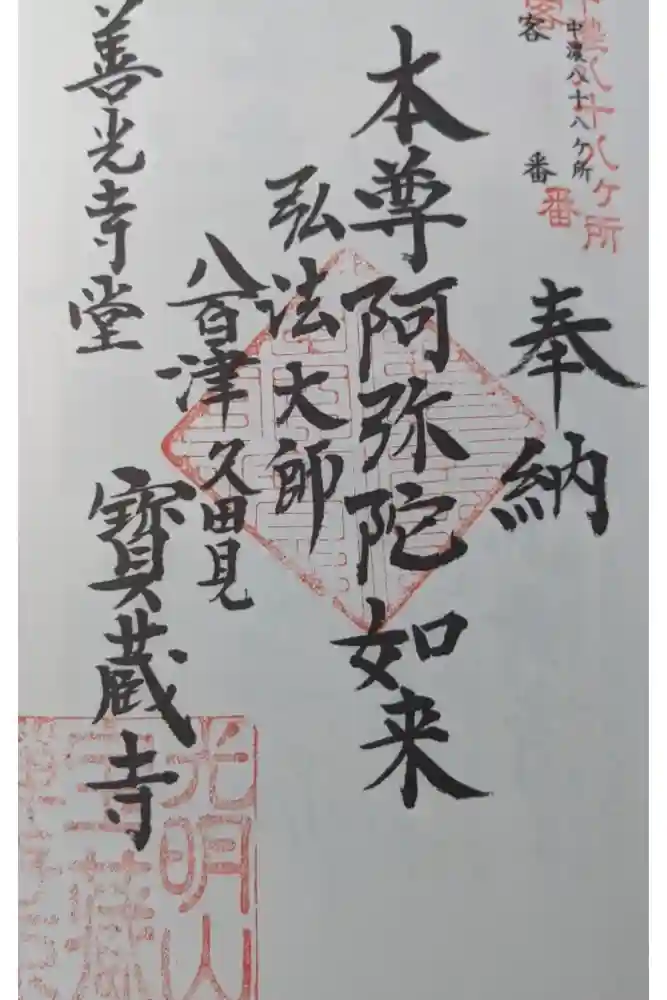 中濃八十八ヶ所
客番
奉納
本尊阿弥陀如来
弘法大師
八百津久田見
善光寺堂
寳蔵寺
光明山